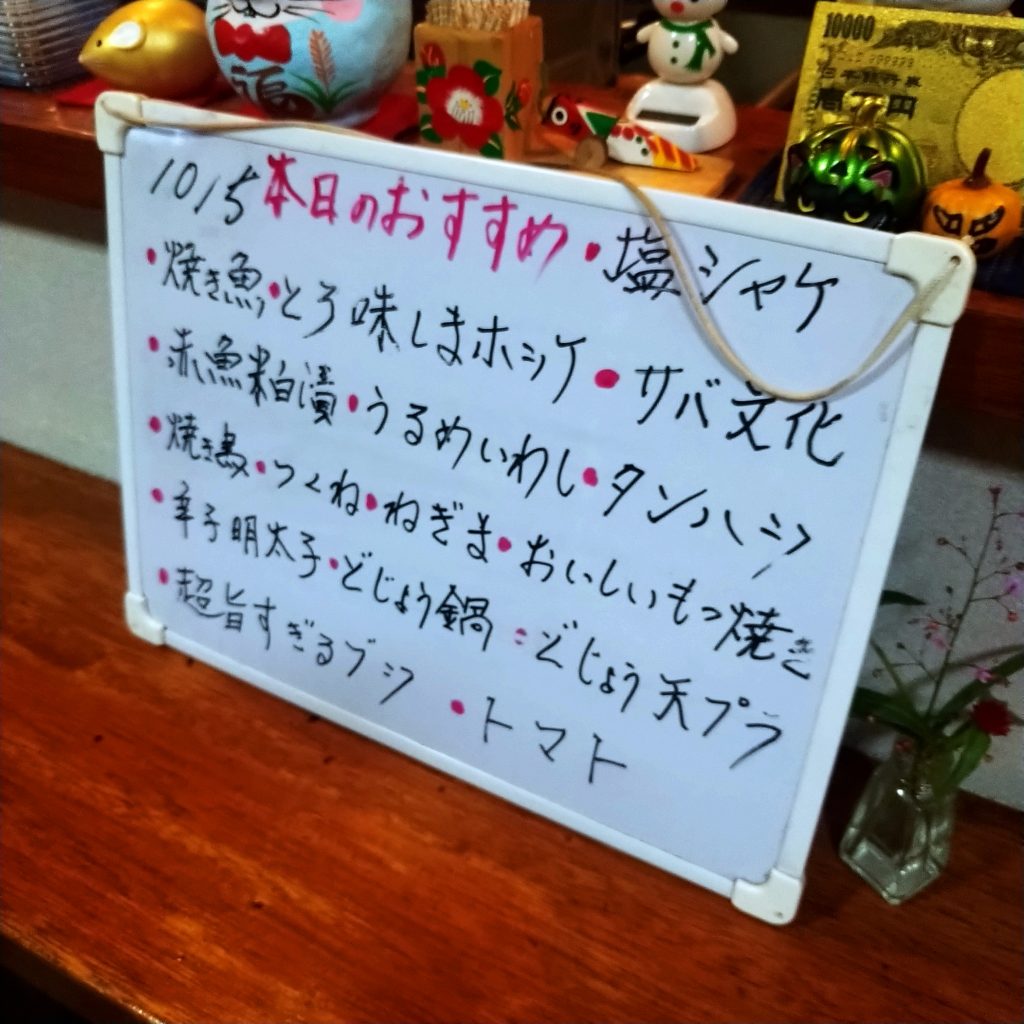 福
10000
10/5 本日のおすすめ・塩シャケ
・焼き魚・とろ味しまホッケ・サバ文化
・赤魚粕漬・うるめいわし・タンハシ
・焼き鳥・つくね・ねぎま・おいしいもつ焼き
・辛子明太子・どじょう鍋・どじょう天プラ
・超旨すぎるブシツ・トマト